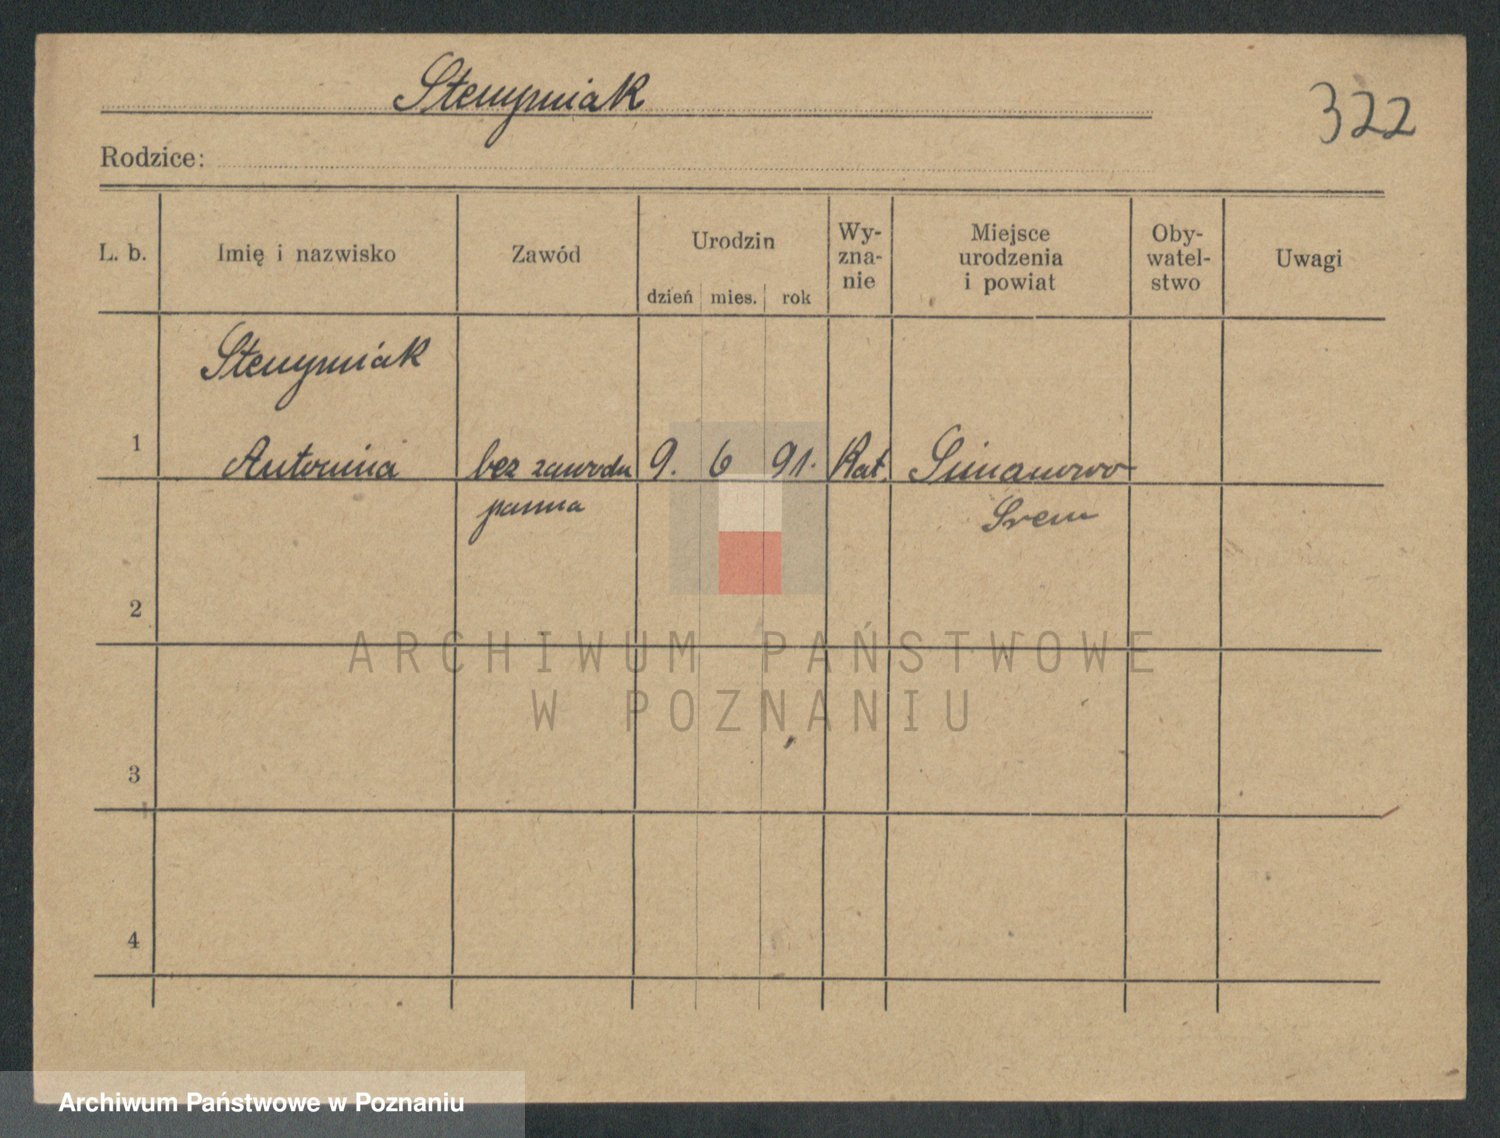 Stempniak
322
Rodzice:
L. b.
Imię i nazwisko
Zawód
Urodzin
dzień mies. rok
Wy-
zna-
nie
Miejsce
urodzenia
i powiat
Oby-
watel-
stwo
Uwagi
Stempniak
1 Antonina bez zawodu 9. 6 91. Kat. Simanowo
panna Srem
2
ARCHIWUM PAŃSTWOWE
W POZNANIU
3
4
Archiwum Państwowe w Poznaniu